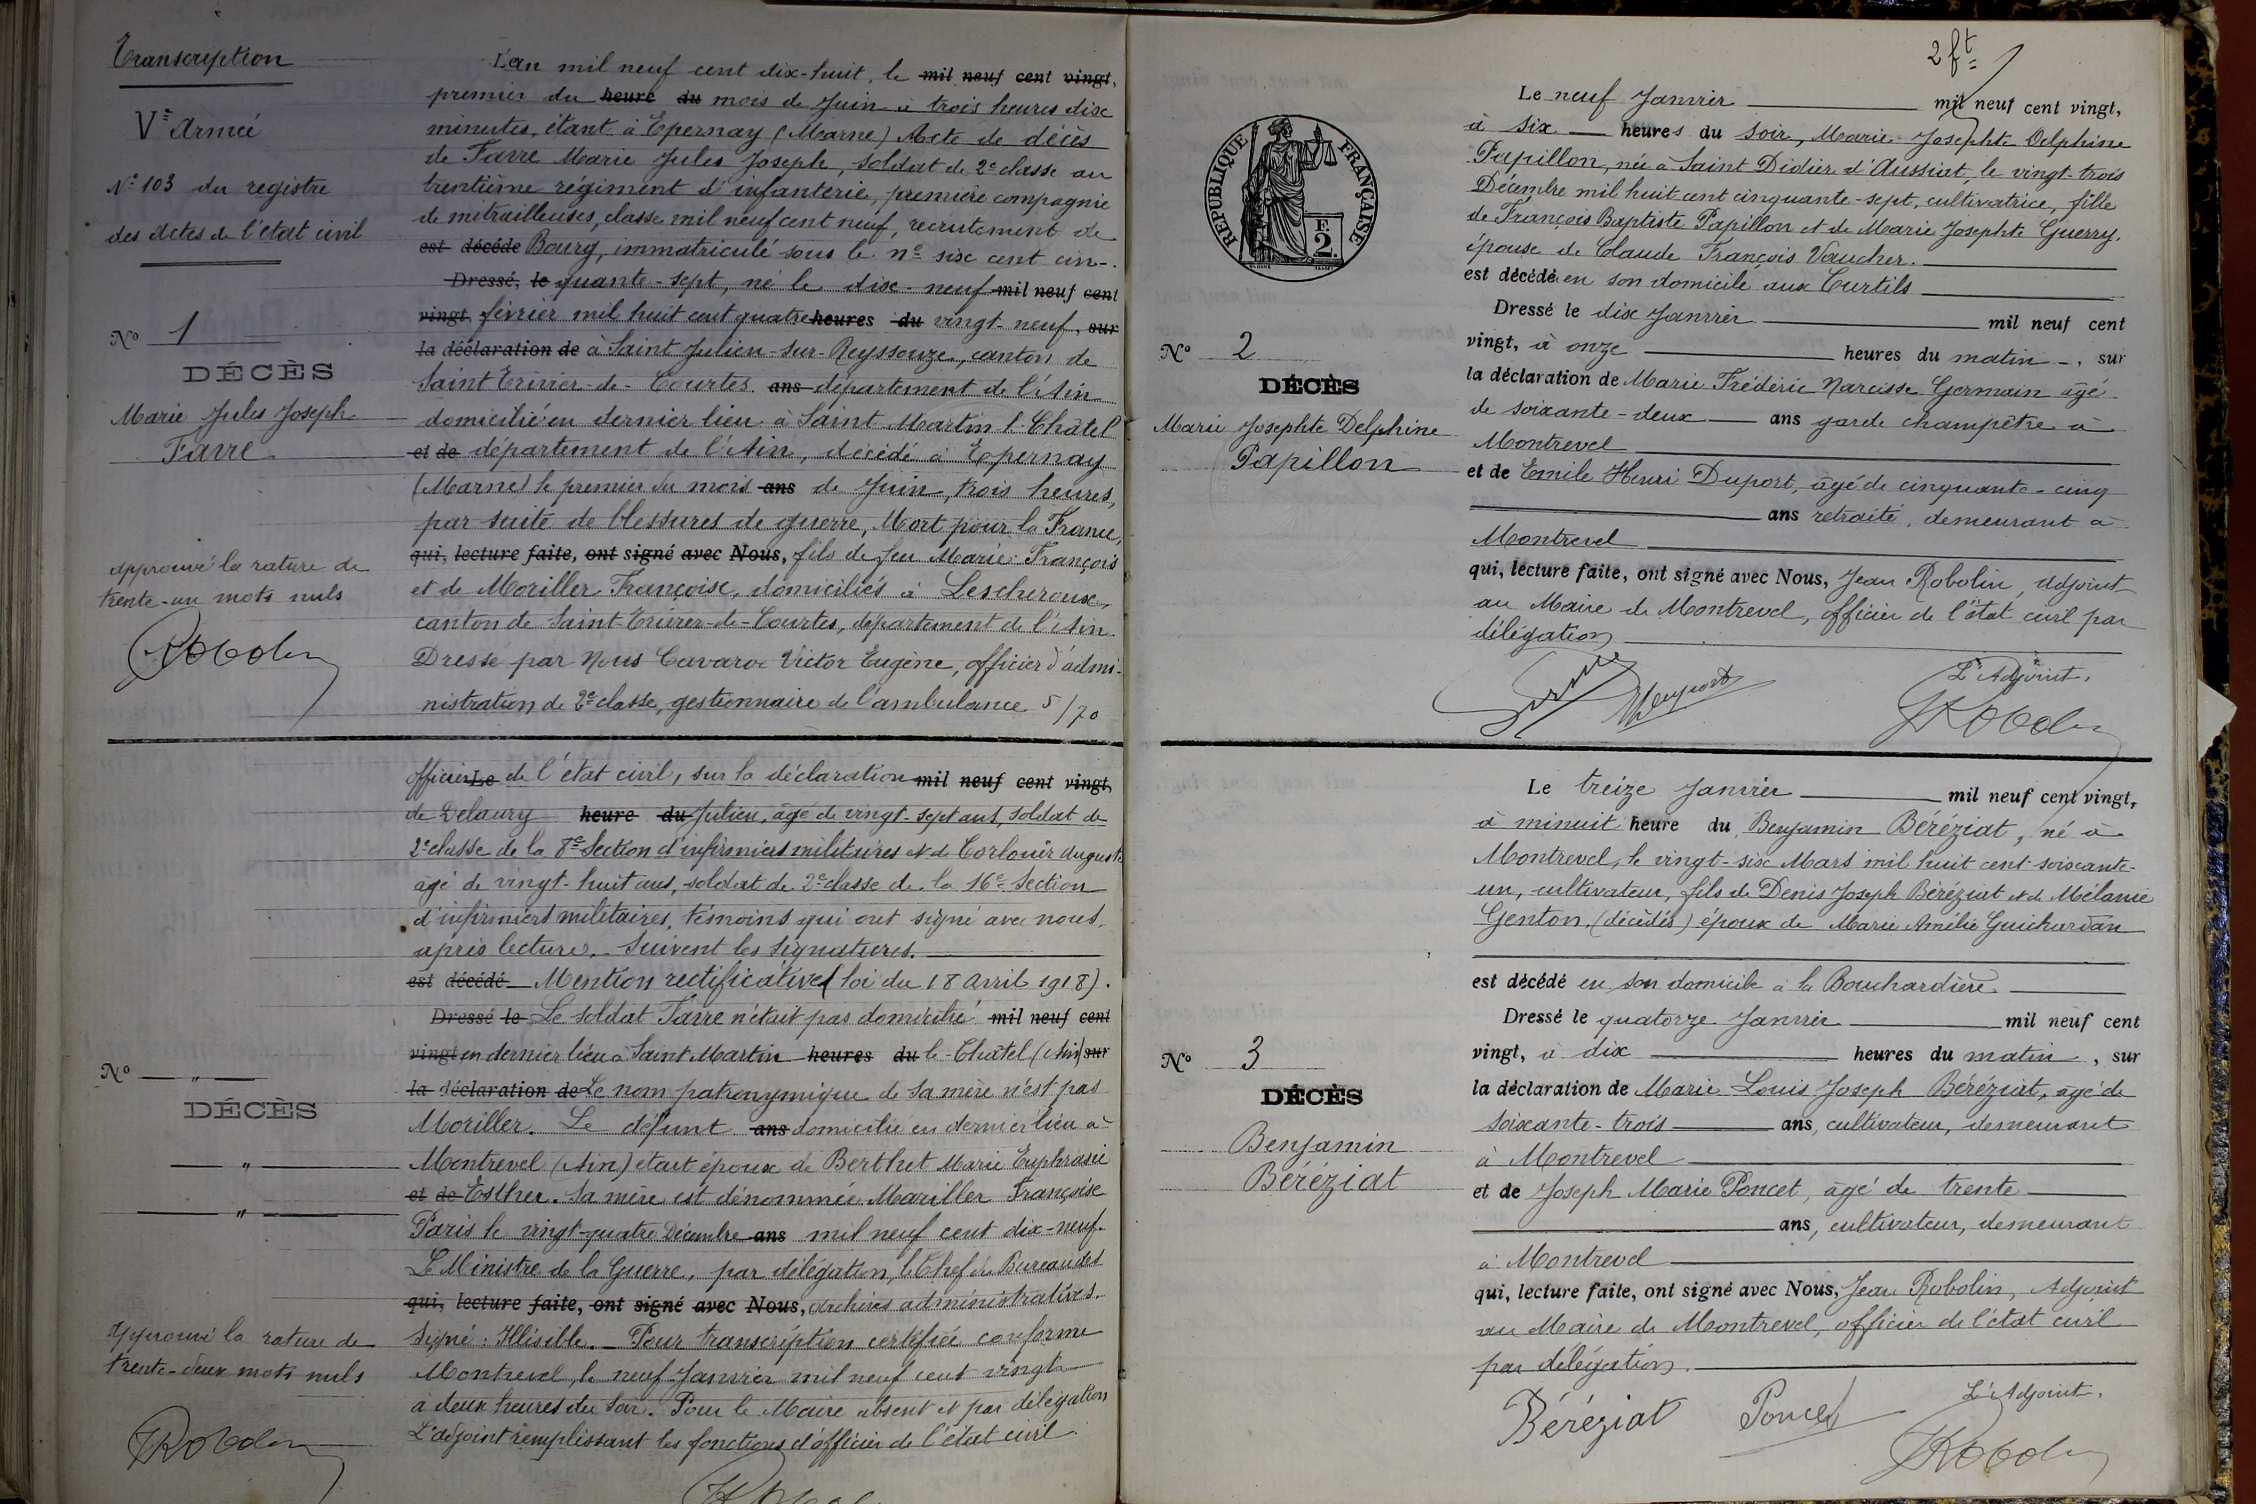 Transcription
Vᵉ Armée
Nº 103 du registre
des actes de l'état civil
Nº 1
DÉCÈS
Marie Jules Joseph
Favre
approuvé la rature de
trente-un mots nuls
L'an mil neuf cent dix-huit, le mil neuf cent vingt,
premier du heure du mois de Juin à trois heures dix
minutes, étant à Epernay (Marne) Acte de décès
de Favre Marie Jules Joseph, soldat de 2e classe au
trentième régiment d'infanterie, première compagnie
de mitrailleuses, classe mil neuf cent neuf, recrutement de
est décédé Bourg, immatriculé sous le nº six cent cin-
Dressé, le quante-sept, né le dix-neuf mil neuf cent
vingt, février mil huit cent quatre heures du vingt-neuf, sur
la déclaration de à Saint Julien-sur-Reyssouze, canton de
Saint Trivier-de-Courtes ans département de l'Ain
domicilié en dernier lieu à Saint Martin l-Châtel
et de département de l'Ain, décédé à Epernay
(Marne) le premier du mois ans de Juin, trois heures,
par suite de blessures de guerre, Mort pour la France,
qui, lecture faite, ont signé avec Nous, fils de feu Marie François
et de Moriller Françoise, domiciliés à Lescheroux,
canton de Saint-Trivier-de-Courtes, département de l'Ain
Dressé par Nous Cavaroc Victor Eugène, officier d'admi-
nistration de 2e classe, gestionnaire de l'ambulance 5/70
Nº "
DÉCÈS
"
"
Approuvé la rature de
trente-deux mots nuls
officier Le de l'état civil, sur la déclaration mil neuf cent vingt,
de Delaury heure du Julien, âgé de vingt-sept ans, soldat de
2e classe de la 8e Section d'infirmiers militaires et de Corlouër Auguste
âgé de vingt-huit ans, soldat de 2e classe de la 16e Section
d'infirmiers militaires, témoins qui ont signé avec nous,
après lecture. Suivent les signatures.
est décédé Mention rectificative (loi du 18 Avril 1918).
Dressé le Le soldat Favre n'était pas domicilié mil neuf cent
vingt en dernier lieu à Saint Martin heures du le-Châtel (Ain) sur
la déclaration de Le nom patronymique de sa mère n'est pas
Moriller. Le défunt ans domicilié en dernier lieu à
Montrevel (Ain) était époux de Berthet Marie Euphrasie
et de Esther. Sa mère est dénommée Mariller Françoise
Paris le vingt-quatre Décembre ans mil neuf cent dix-neuf.
Le Ministre de la Guerre, par délégation, le Chef du Bureau des
qui, lecture faite, ont signé avec Nous, archives administratives.
Signé : Illisible. Pour transcription certifiée conforme
Montrevel, le neuf Janvier mil neuf cent vingt
à deux heures du soir. Pour le Maire absent et par délégation
L'adjoint remplissant les fonctions d'officier de l'état civil
2 ft
RÉPUBLIQUE FRANÇAISE
F.
2.
Nº 2
DÉCÈS
Marie Josephte Delphine
Papillon
Le neuf Janvier mil neuf cent vingt,
à six heures du soir, Marie Josephte Delphine
Papillon, née à Saint Didier d'Aussiat, le vingt-trois
Décembre mil huit cent cinquante-sept, cultivatrice, fille
de François Baptiste Papillon et de Marie Josephte Guerry,
épouse de Claude François Vaucher.
est décédée en son domicile aux Curtils
Dressé le dix Janvier mil neuf cent
vingt, à onze heures du matin, sur
la déclaration de Marie Frédéric Narcisse Germain âgé
de soixante-deux ans garde champêtre à
Montrevel
et de Emile Henri Duport, âgé de cinquante-cinq
ans retraité, demeurant à
Montrevel
qui, lecture faite, ont signé avec Nous, Jean Robolin, adjoint
au Maire de Montrevel, officier de l'état civil par
délégation
Duport
L'Adjoint,
JRobolin
Nº 3
DÉCÈS
Benjamin
Béréziat
Le treize Janvier mil neuf cent vingt,
à minuit heure du Benjamin Béréziat, né à
Montrevel, le vingt-six Mars mil huit cent soixante-
un, cultivateur, fils de Denis Joseph Béréziat et de Mélanie
Genton, (décédés) époux de Marie Amélie Guichardan
est décédé en son domicile à la Bouchardière
Dressé le quatorze Janvier mil neuf cent
vingt, à dix heures du matin, sur
la déclaration de Marie Louis Joseph Béréziat, âgé de
soixante-trois ans, cultivateur, demeurant
à Montrevel
et de Joseph Marie Poncet, âgé de trente
ans, cultivateur, demeurant
à Montrevel
qui, lecture faite, ont signé avec Nous, Jean Robolin, Adjoint
au Maire de Montrevel, officier de l'état civil
par délégation.
Béréziat Poncet
L'Adjoint,
JRobolin